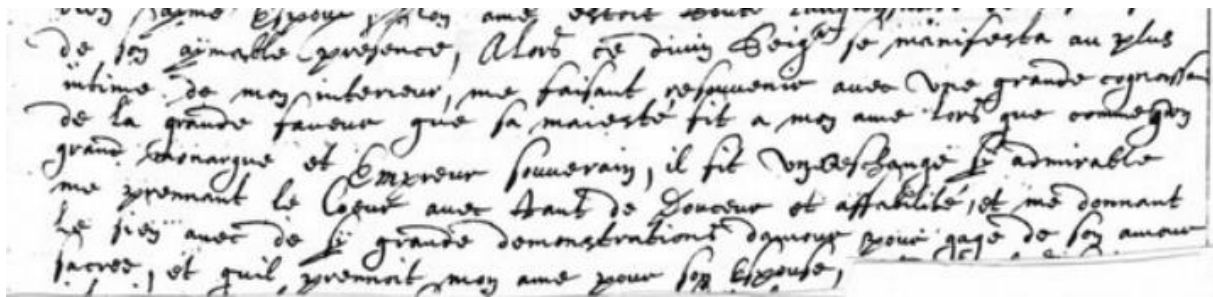 bien aymé Espoux mon ame estoit toute
de son aymable presence, Alors ce divin Seigr se manifesta au plus
intime de mon interieur, me faisant resouvenir avec une grande cognoissan
de la grande faveur que sa maiesté fit a mon ame lors que comme un
grand monarque et Empreur souverain, il fit un eschange sy admirable
me prennant le Coeur avec tant de Douceur et affabilité, et me donnant
le sien avec de sy grande demonstrations damour pour gage de son amour
sacree, et quil prennoit mon ame pour son Espouse,